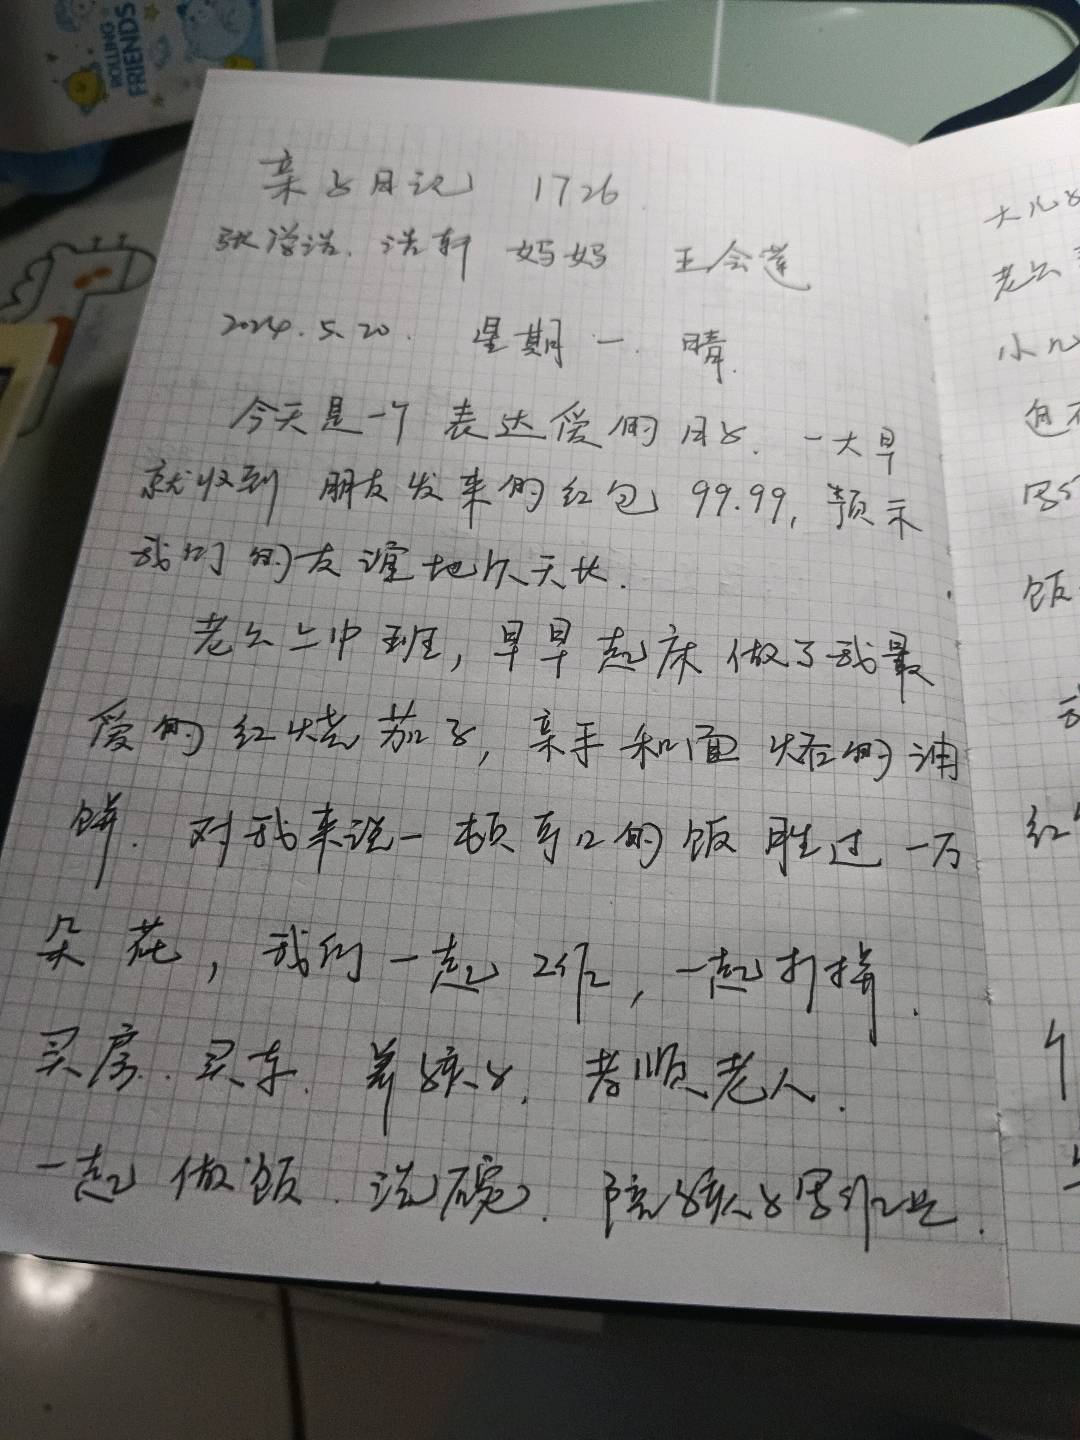 ROLLING
FRIENDS
亲子日记 1726
张浩浩、浩轩 妈妈 王会莲
2024.5.20. 星期一. 晴.
今天是一个表达爱的日子. 一大早
就收到朋友发来的红包99.99, 预示
我们的友谊地久天长.
老公上中班, 早早起床做了我最
爱的红烧茄子, 亲手和面烙的油
饼. 对我来说一顿可口的饭胜过一万
朵花, 我们一起工作, 一起打拼.
买房. 买车. 养孩子. 孝顺老人.
一起做饭. 洗碗. 陪孩子写作业.
大儿子
老公
小儿
包
写
饭
红
个